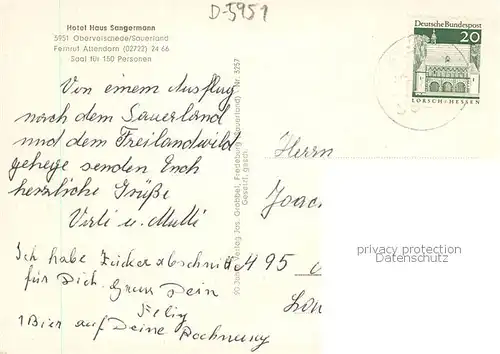 D-5951
Hotel Haus Sangermann
5951 Oberveischede/Sauerland
Fernruf Attendorn (02722) 24 66
Saal für 150 Personen
Deutsche Bundespost
20
LORSCH · HESSEN
Von einem Ausflug
nach dem Sauerland
und dem Freilandwild
gehege senden Euch
herzliche Grüße
Verli u. Mutti
Ich habe Zuckerabschnitt A 95
für Dich. Gruss Dein
1 Bier auf Deine Rechnung
Verlag Jos. Grobbel, Fredeburg (Sauerland) · Nr. 3257
Gesetzl. gesch.
Herrn
Joac
privacy protection
AKPool.de